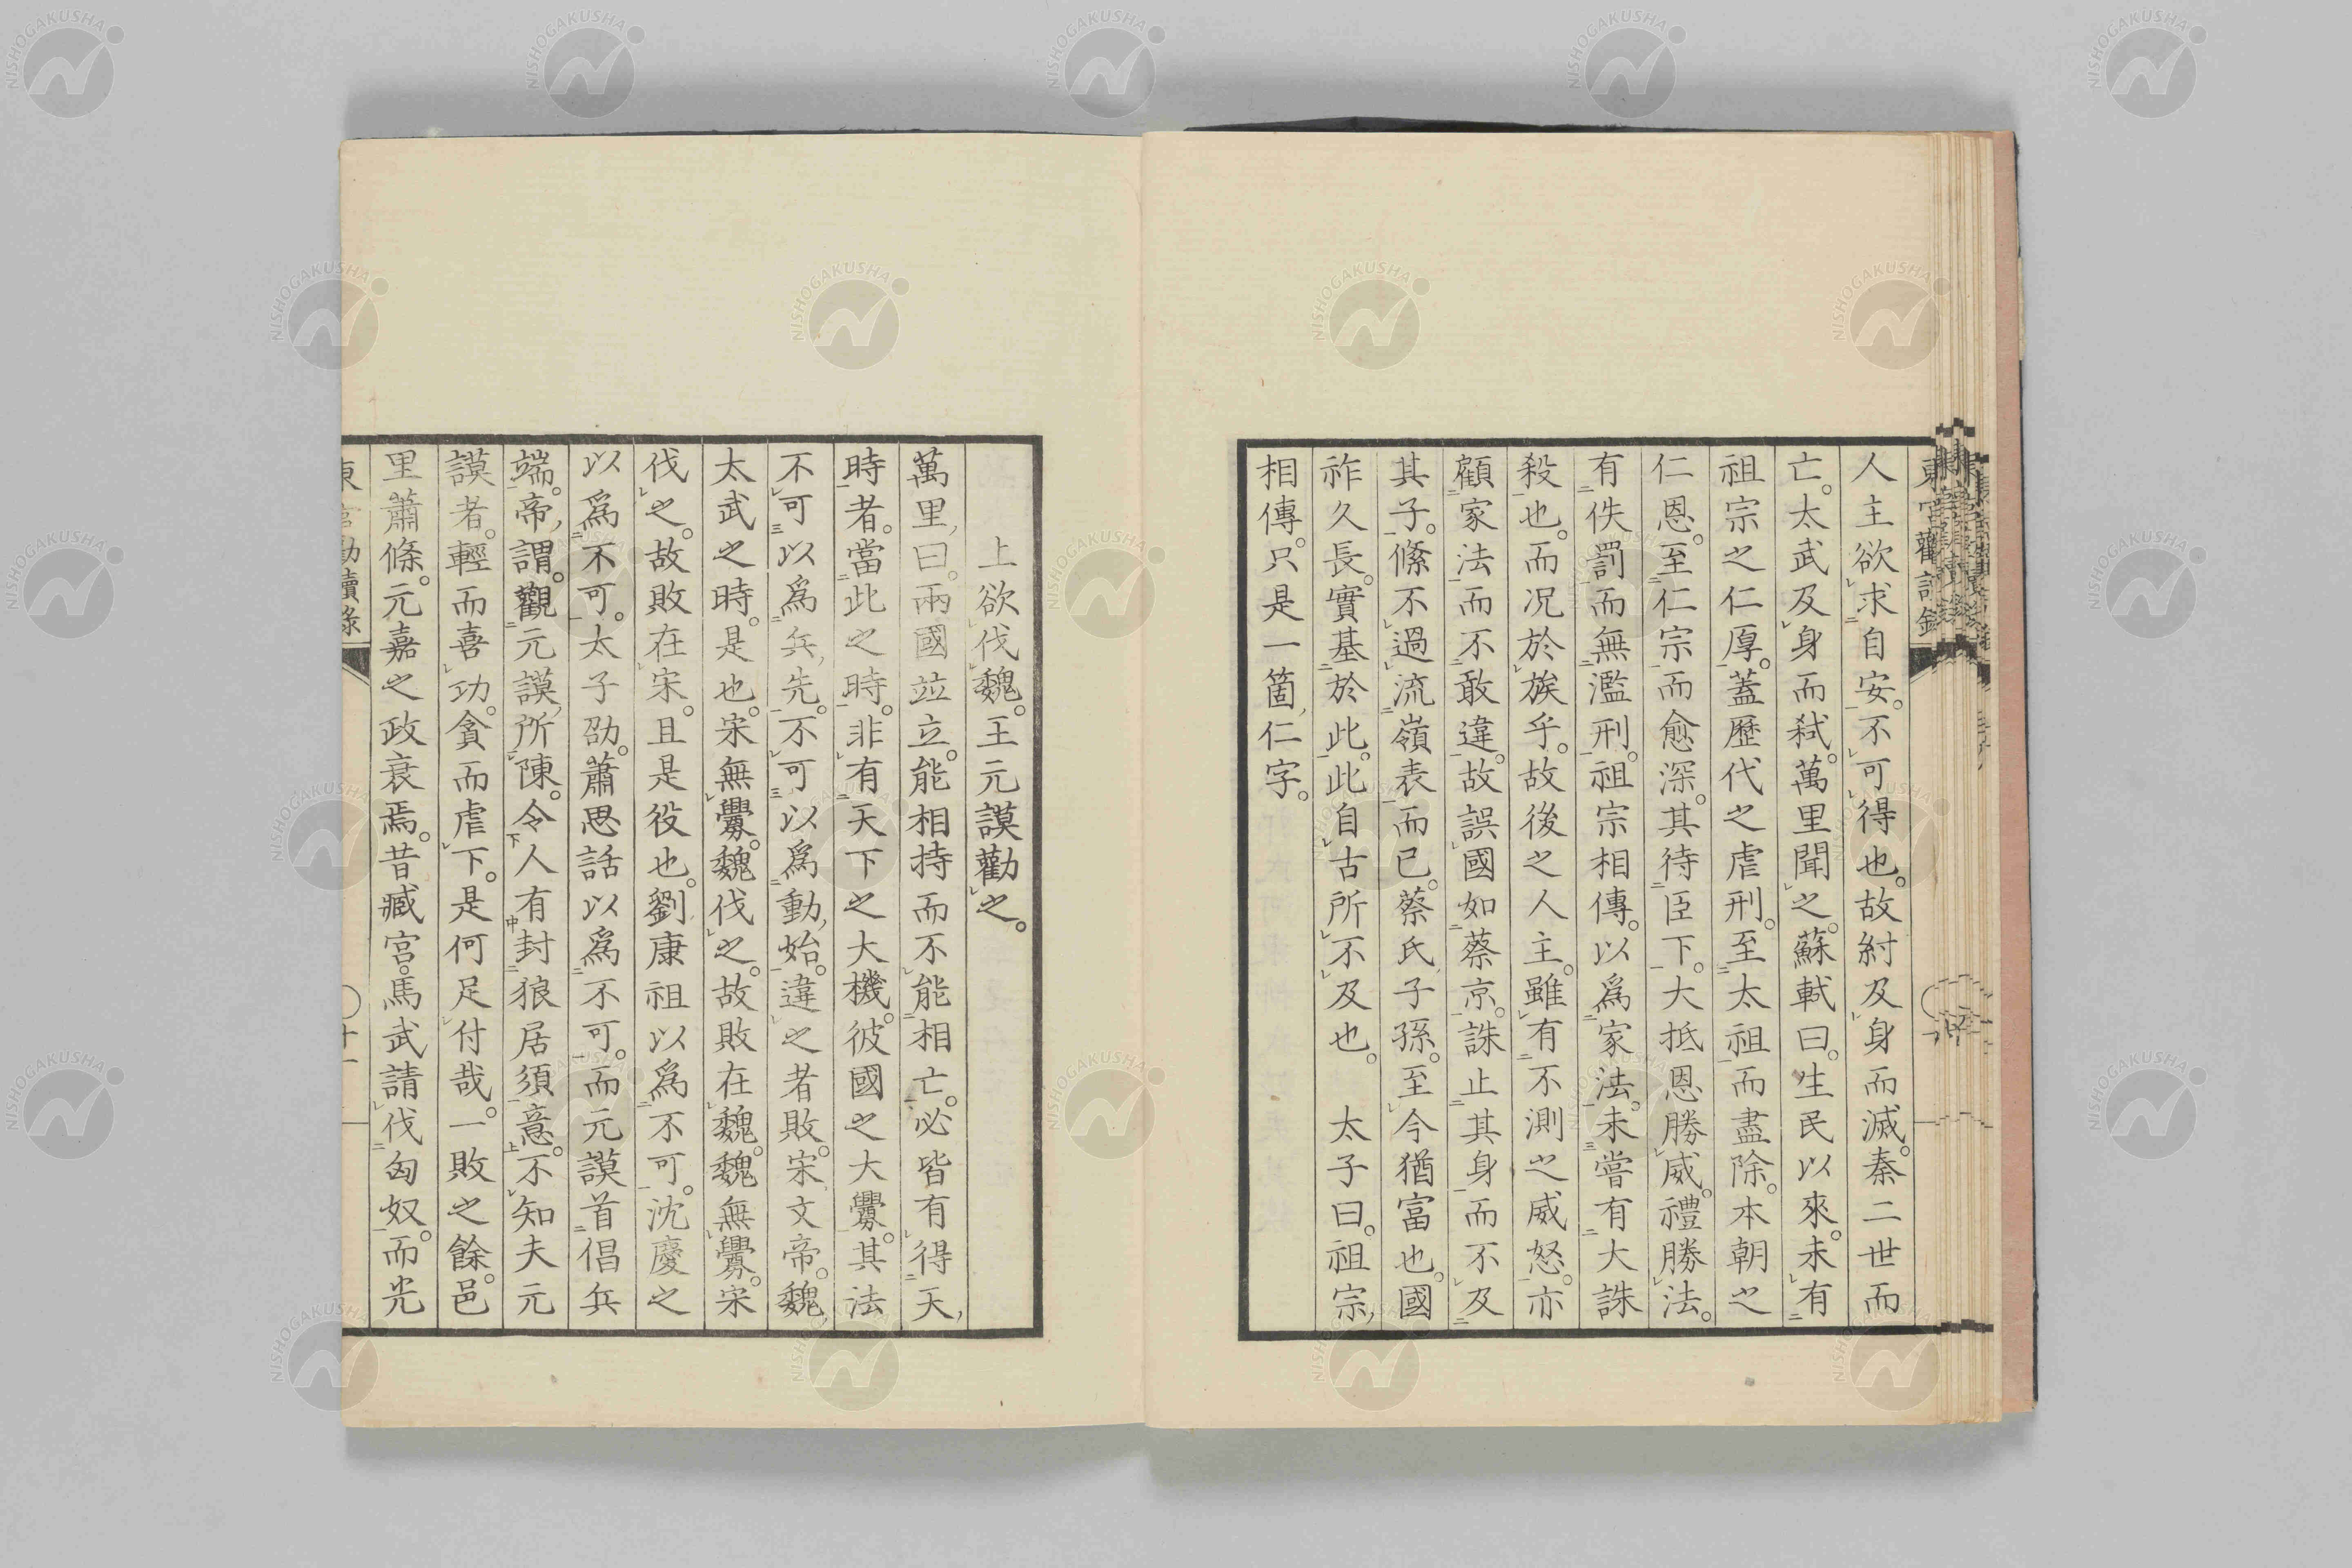 人主欲求自安。不可得也。故紂及身而滅。秦二世而
亡。太武及身而弑。萬里聞之。蘇軾曰。生民以來。未有
祖宗之仁厚。蓋歷代之虐刑。至太祖而盡除。本朝之
仁恩。至仁宗而愈深。其待臣下。大抵恩勝威。禮勝法。
有佚罰而無濫刑。祖宗相傳。以爲家法。未嘗有大誅
殺也。而況於族乎。故後之人主。雖有不測之威怒。亦
顧家法而不敢違。故誤國如蔡京。誅止其身而不及
其子。絛不過流嶺表而已。蔡氏子孫。至今猶富也。國
祚久長。實基於此。此自古所不及也。 太子曰。祖宗
相傳。只是一箇仁字。
上欲伐魏。王元謨勸之。
萬里曰。兩國並立。能相持而不能相亡。必皆有得天
時者。當此之時。非有天下之大機。彼國之大釁。其法
不可以爲兵先。不可以爲動始。違之者敗。宋文帝。魏
太武之時。是也。宋無釁。魏伐之。故敗在魏。魏無釁。宋
伐之。故敗在宋。且是役也。劉康祖以爲不可。沈慶之
以爲不可。太子劭。蕭思話以爲不可。而元謨首倡兵
端。帝謂。觀元謨所陳。令人有封狼居須意。不知夫元
謨者。輕而喜功。貪而虐下。是何足付哉。一敗之餘。邑
里蕭條。元嘉之政衰焉。昔臧宮。馬武請伐匈奴。而光
東宮勸讀錄
十一
NISHOGAKUSHA